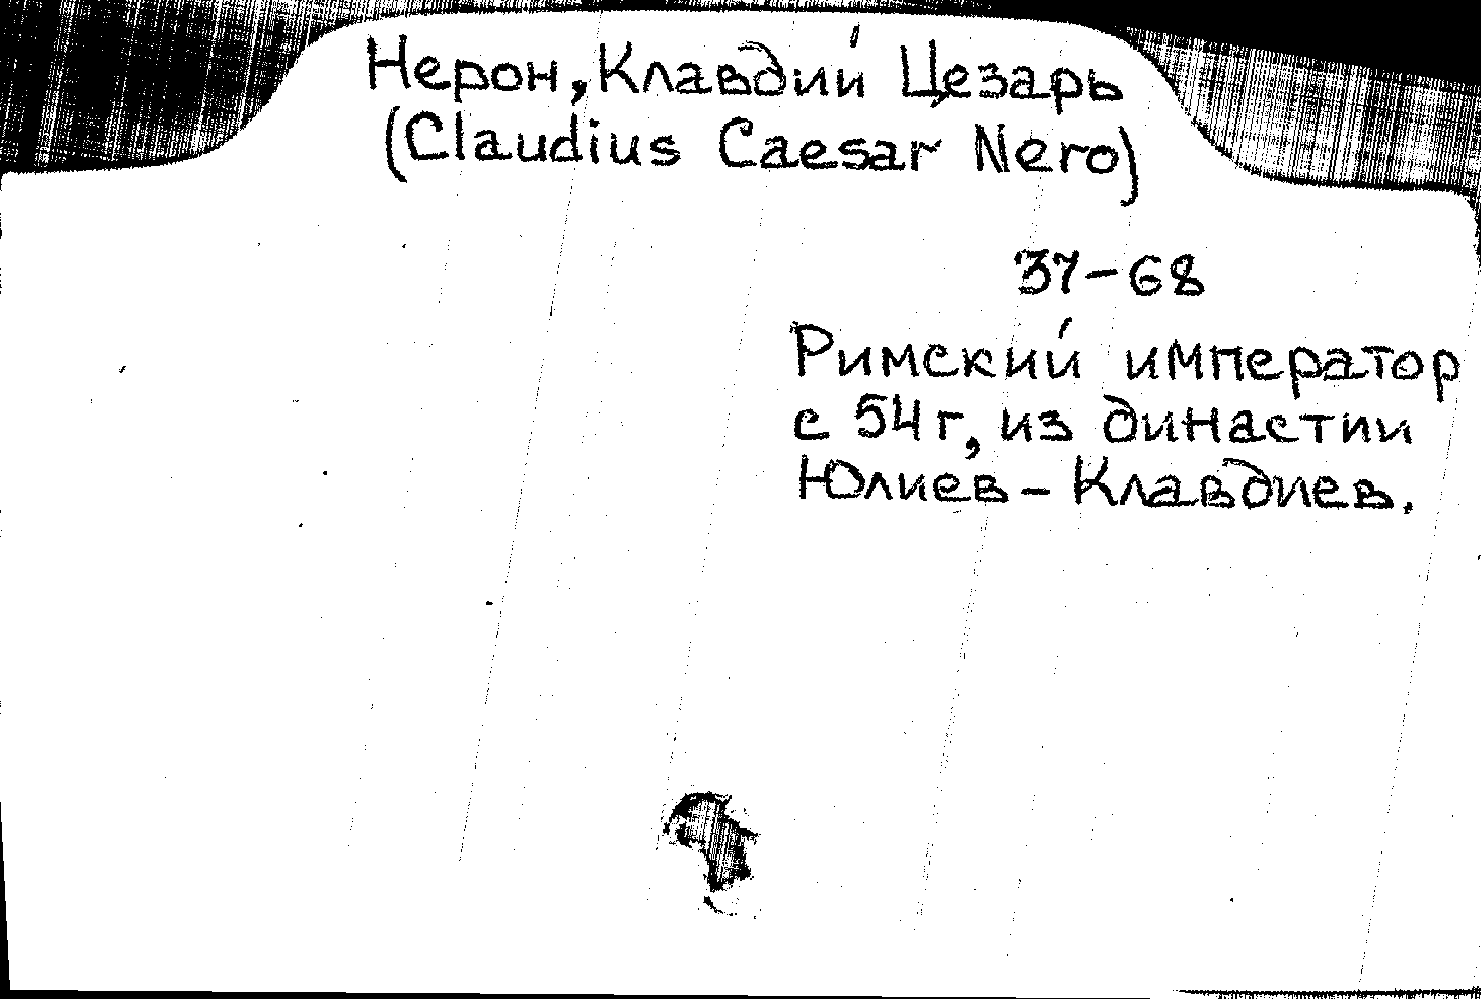 Нерон, Клавдий Цезарь
(Claudius Caesar Nero)
37-68
Римский император
с 54г, из династии
Юлиев - Клавдиев.